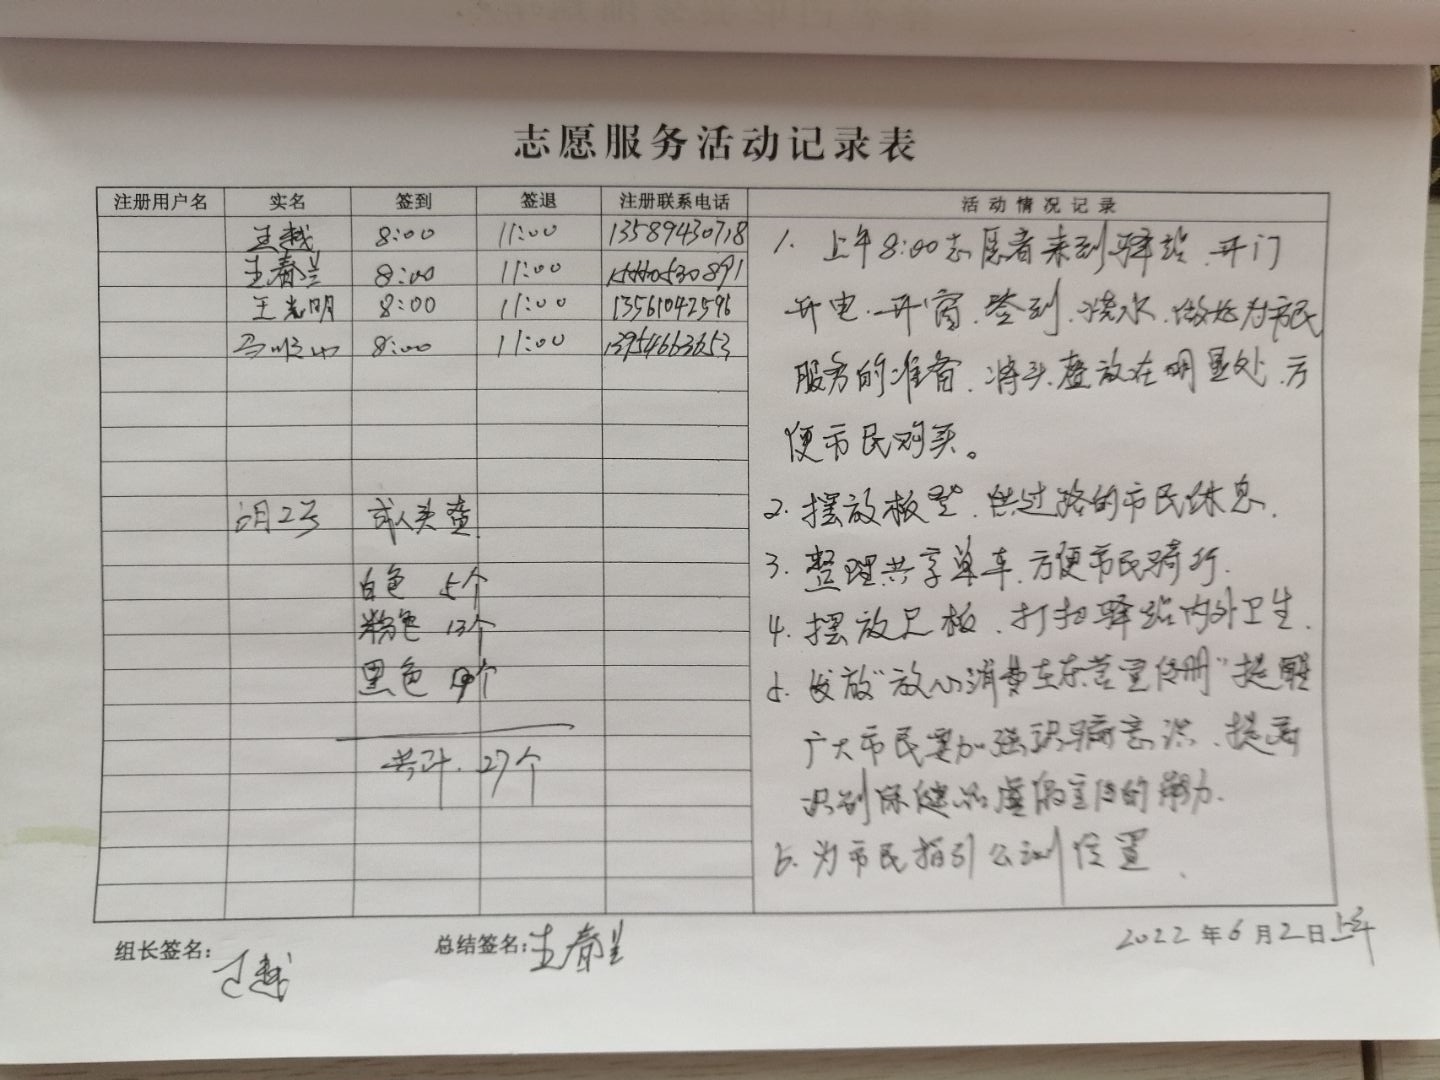 志愿服务活动记录表
注册用户名 实名 签到 签退 注册联系电话 活动情况记录
王越 8:00 11:00 13589430718
王春兰 8:00 11:00
王光明 8:00 11:00 13561042596
8:00 11:00 13954663653
1. 上午8:00志愿者来到驿站、开门
开电、开窗、签到、烧水、做好为市民
服务的准备、将头盔放在明显处、方
便市民购买。
2. 摆放板凳、供过路的市民休息.
3. 整理共享单车、方便市民骑行.
4. 摆放足板、打扫驿站内外卫生.
5. 发放"放心消费在东营宣传册"提醒
广大市民要加强识骗意识、提高
识别保健品虚假宣传的能力.
6. 为市民指引公测位置.
6月2号 成人头盔
白色 5个
粉色 13个
黑色 9个
共计. 27个
组长签名: 王越 总结签名: 王春兰 2022年6月2日上午